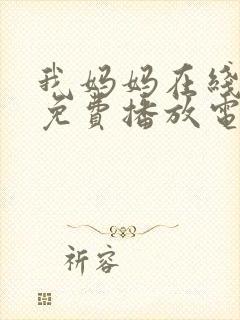 我妈妈在线
免費播放電
祈容